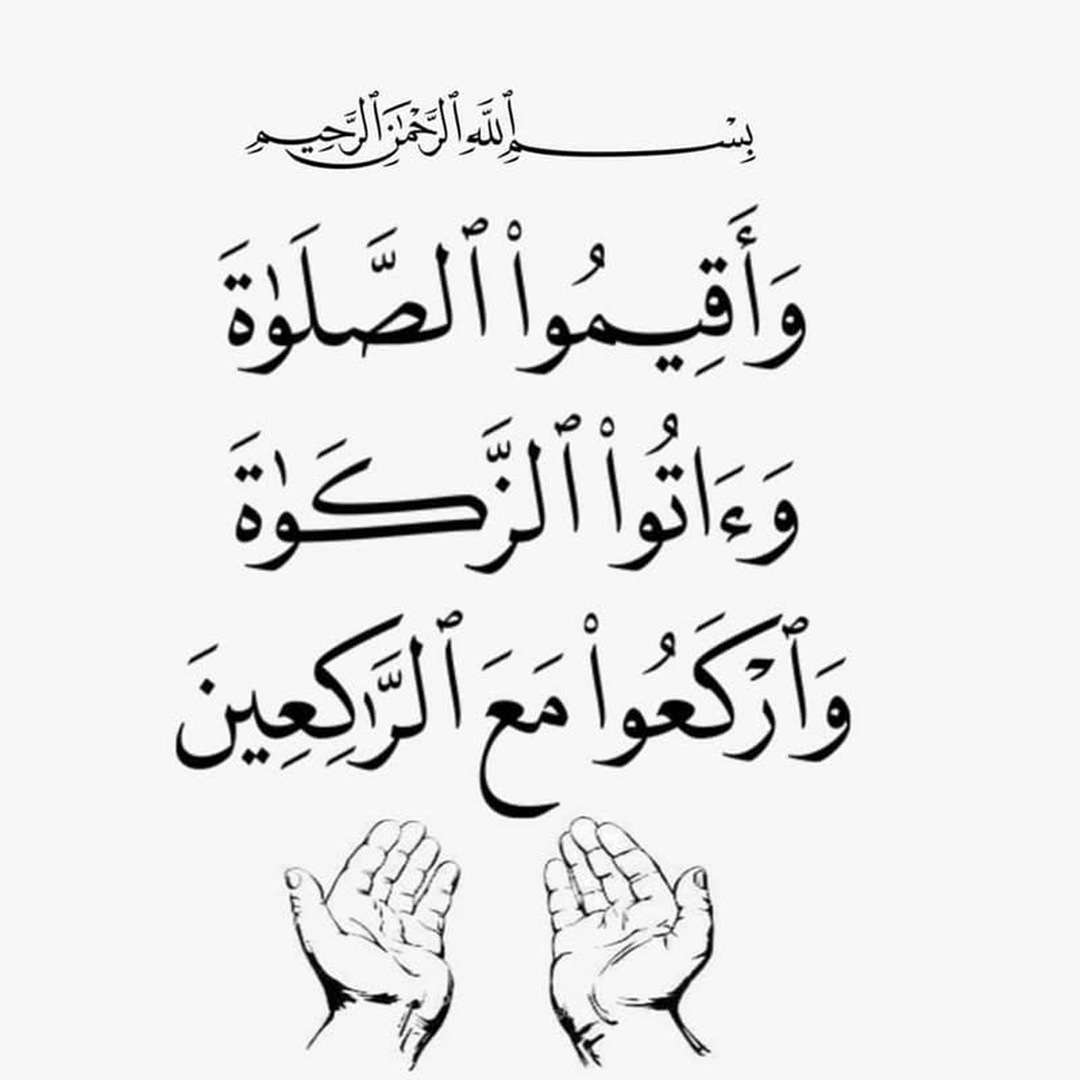 بِسْمِ ٱللَّهِ ٱلرَّحْمَٰنِ ٱلرَّحِيمِ
وَأَقِيمُوا۟ ٱلصَّلَوٰةَ
وَءَاتُوا۟ ٱلزَّكَوٰةَ
وَٱرْكَعُوا۟ مَعَ ٱلرَّٰكِعِينَ